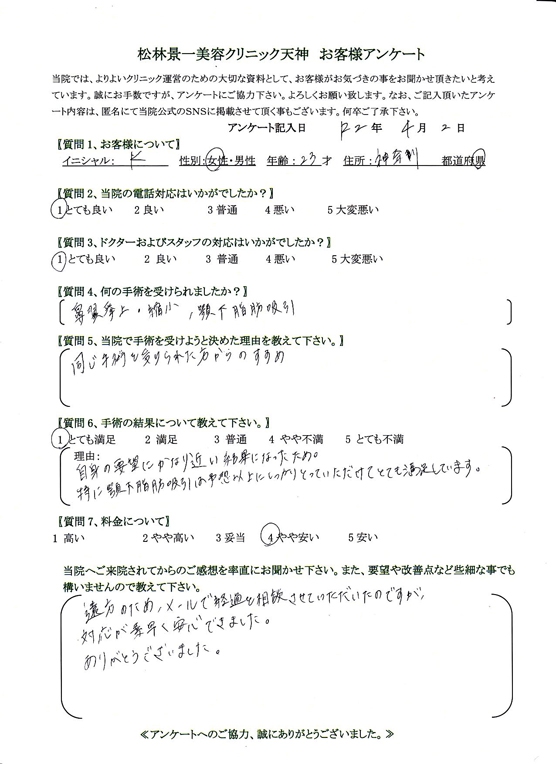 松林景一美容クリニック天神 お客様アンケート
当院では、よりよいクリニック運営のための大切な資料として、お客様がお気づきの事をお聞かせ頂きたいと考え
ています。誠にお手数ですが、アンケートにご協力下さい。よろしくお願い致します。なお、ご記入頂いたアンケ
ート内容は、匿名にて当院公式のSNSに掲載させて頂く事もございます。何卒ご了承下さい。
アンケート記入日 R2 年 4 月 2 日
〖質問1、お客様について〗
イニシャル: K 性別:女性・男性 年齢:23才 住所:神奈川 都道府県
〖質問2、当院の電話対応はいかがでしたか?〗
1とても良い 2良い 3普通 4悪い 5大変悪い
〖質問3、ドクターおよびスタッフの対応はいかがでしたか?〗
1とても良い 2良い 3普通 4悪い 5大変悪い
〖質問4、何の手術を受けられましたか?〗
鼻翼挙上・縮小,顎下脂肪吸引
〖質問5、当院で手術を受けようと決めた理由を教えて下さい。〗
同じ手術を受けられた方からのすすめ
〖質問6、手術の結果について教えて下さい。〗
1とても満足 2満足 3普通 4やや不満 5とても不満
理由:
自身の要望にかなり近い結果になったため。
特に顎下脂肪吸引は予想以上にしっかりとっていただけてとても満足しています。
〖質問7、料金について〗
1高い 2やや高い 3妥当 4やや安い 5安い
当院へご来院されてからのご感想を率直にお聞かせ下さい。また、要望や改善点など些細な事でも
構いませんので教えて下さい。
遠方のため、メールで経過を相談させていただいたのですが、
対応が素早く安心できました。
ありがとうございました。
≪アンケートへのご協力、誠にありがとうございました。≫